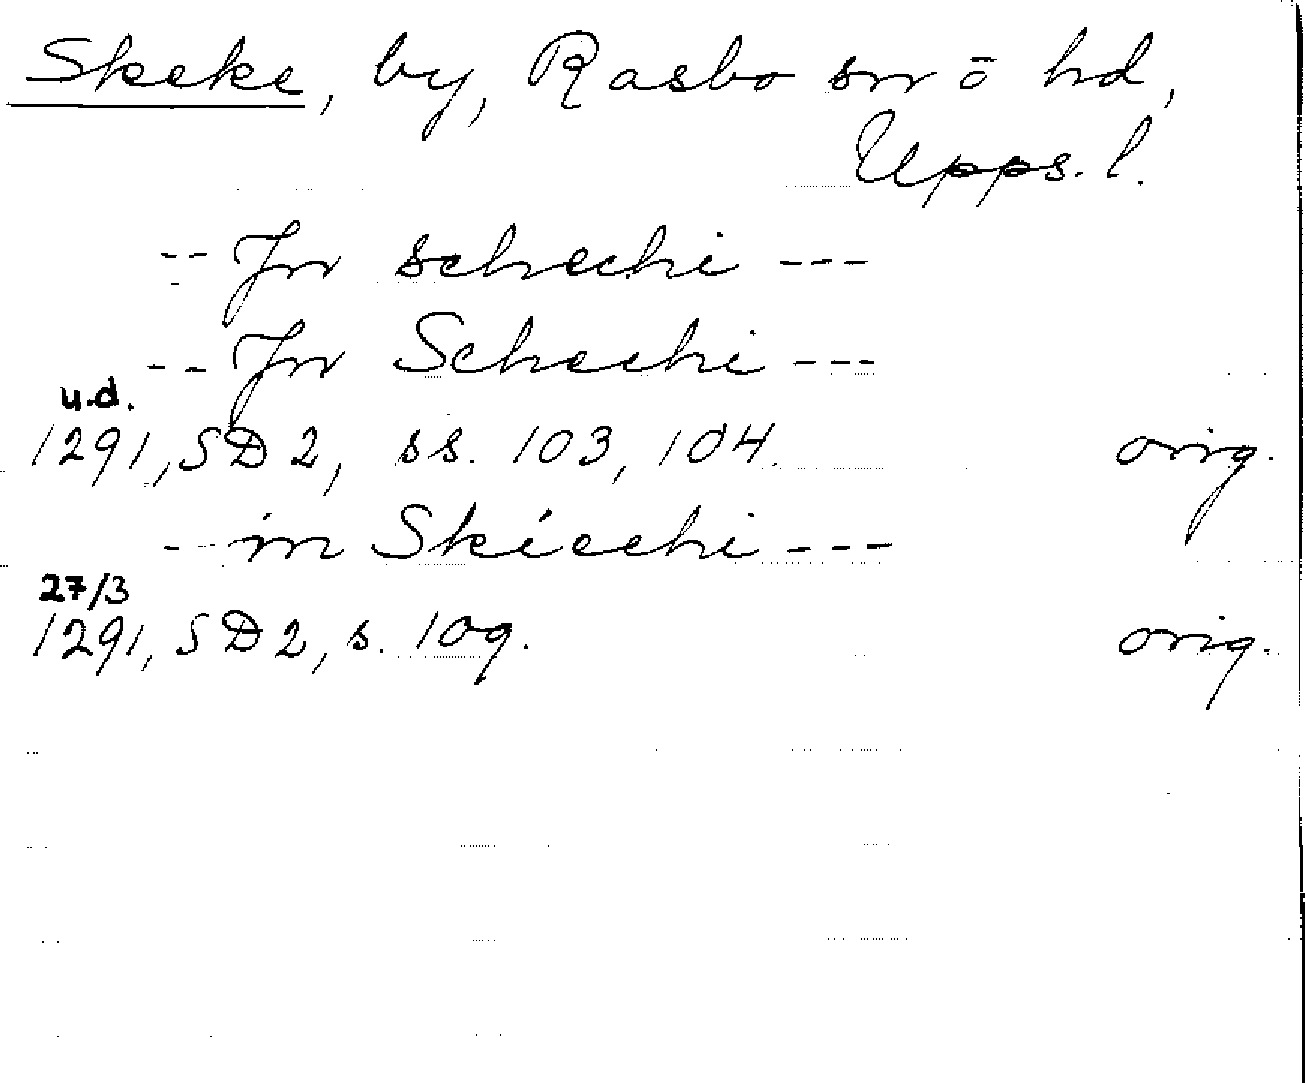 Skeke, by, Rasbo sn o hd,
Upps. l.
-- Jn schechi ---
-- Jn Schechi ---
u.d.
1291, SD 2, ss. 103, 104. orig.
-- in Skécchi ---
27/3
1291, SD 2, s. 109. orig.